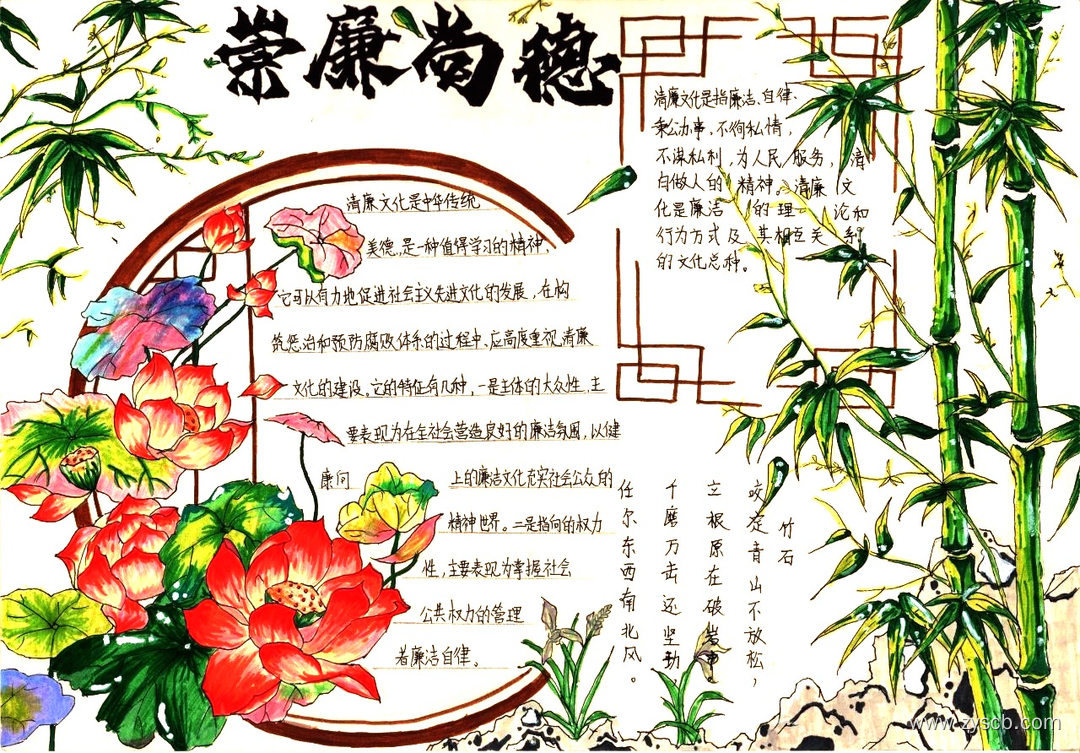 崇廉尚德
清廉文化是指廉洁、自律、
秉公办事,不徇私情,
不谋私利,为人民服务,清
白做人的精神。清廉文
化是廉洁的理论和
行为方式及其相互关系
的文化总称。
清廉文化是中华传统
美德,是一种值得学习的精神,
它可以有力地促进社会主义先进文化的发展,在构
筑惩治和预防腐败体系的过程中,应高度重视清廉
文化的建设。它的特征有几种,一是主体的大众性,主
要表现为在全社会营造良好的廉洁氛围,以健
康向上的廉洁文化充实社会公众的
精神世界。二是指向的权力
性,主要表现为掌握社会
公共权力的管理
者廉洁自律。
竹石
咬定青山不放松,
立根原在破岩中
千磨万击还坚劲
任尔东西南北风。
www.zyscb.com